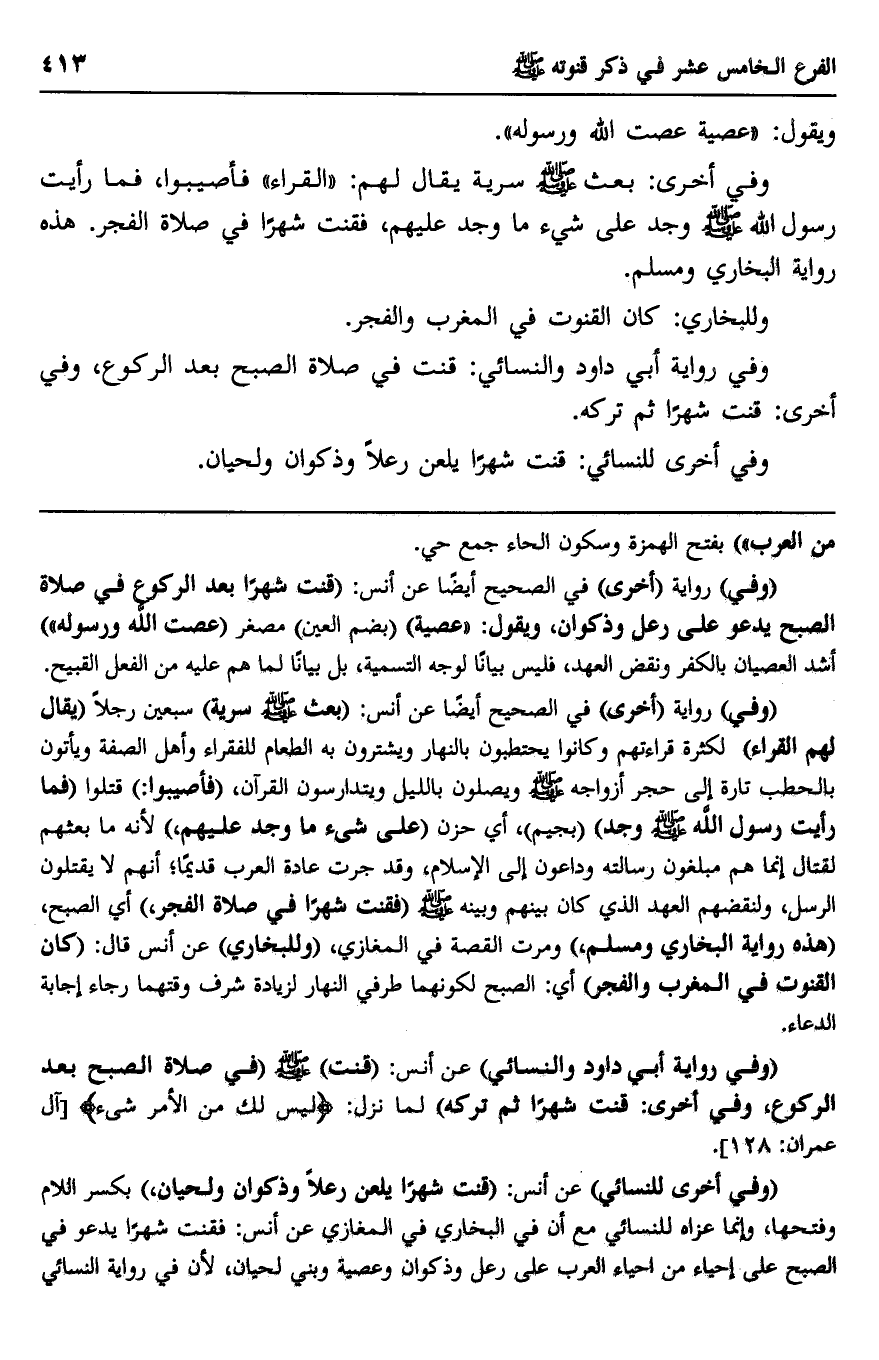 الفرع الخامس عشر في ذكر قنوته ﷺ ٤١٣
ويقول: «عصية عصت الله ورسوله».
وفي أخرى: بعث ﷺ سرية يقال لهم: «القراء» فأصيبوا، فما رأيت
رسول الله ﷺ وجد على شيء ما وجد عليهم، فقنت شهرًا في صلاة الفجر. هذه
رواية البخاري ومسلم.
وللبخاري: كان القنوت في المغرب والفجر.
وفي رواية أبي داود والنسائي: قنت في صلاة الصبح بعد الركوع، وفي
أخرى: قنت شهرًا ثم تركه.
وفي أخرى للنسائي: قنت شهرًا يلعن رعلاً وذكوان ولحيان.
من العرب») بفتح الهمزة وسكون الحاء جمع حي.
(وفي) رواية (أخرى) في الصحيح أيضًا عن أنس: (قنت شهرًا بعد الركوع في صلاة
الصبح يدعو على رعل وذكوان، ويقول: «عصية) (بضم العين) مصغر (عصت اللَّه ورسوله»)
أشد العصيان بالكفر ونقض العهد، فليس بيانًا لوجه التسمية، بل بيانًا لما هم عليه من الفعل القبيح.
(وفي) رواية (أخرى) في الصحيح أيضًا عن أنس: (بعث ﷺ سرية) سبعين رجلاً (يقال
لهم القراء) لكثرة قراءتهم وكانوا يحتطبون بالنهار ويشترون به الطعام للفقراء وأهل الصفة ويأتون
بالحطب تارة إلى حجر أزواجه ﷺ ويصلون بالليل ويتدارسون القرآن، (فأصيبوا:) قتلوا (فما
رأيت رسول اللَّه ﷺ وجد) (بجيم)، أي حزن (على شىء ما وجد عليهم،) لأنه ما بعثهم
لقتال إنما هم مبلغون رسالته وداعون إلى الإسلام، وقد جرت عادة العرب قديمًا؛ أنهم لا يقتلون
الرسل، ولنقضهم العهد الذي كان بينهم وبينه ﷺ (فقنت شهرًا في صلاة الفجر،) أي الصبح،
(هذه رواية البخاري ومسلم،) ومرت القصة في المغازي، (وللبخاري) عن أنس قال: (كان
القنوت في المغرب والفجر) أي: الصبح لكونهما طرفي النهار لزيادة شرف وقتهما رجاء إجابة
الدعاء.
(وفي رواية أبي داود والنسائي) عن أنس: (قنت) ﷺ (في صلاة الصبح بعد
الركوع، وفي أخرى: قنت شهرًا ثم تركه) لما نزل: ﴿ليس لك من الأمر شىء﴾ [آل
عمران: ١٢٨].
(وفي أخرى للنسائي) عن أنس: (قنت شهرًا يلعن رعلاً وذكوان ولحيان،) بكسر اللام
وفتحها، وإنما عزاه للنسائي مع أن في البخاري في المغازي عن أنس: فقنت شهرًا يدعو في
الصبح على إحياء من احياء العرب على رعل وذكوان وعصية وبني لحيان، لأن في رواية النسائي